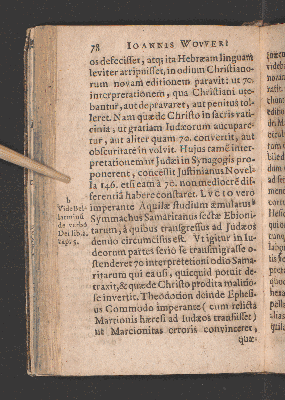 78 IOANNIS WOVVERI
os defecisset, atq; ita Hebræam linguam
leviter arripuisset, in odium Christiano-
rum novam editionem paravit: ut 70.
interpretationem, qua Christiani ute-
bantur, aut depravaret, aut penitus tol-
leret. Nam quæ de Christo in sacris vati-
cinia, ut gratiam Iudæorum aucupare-
tur, aut aliter quam 70. convertit, aut
obscuritate involvit. Hujus tamē inter-
pretationem ut Iudæi in Synagogis pro-
ponerent, concessit Justinianus Novel-
la 146. etsi eam à 70. non mediocre dif-
ferentiā habere constaret. LVCIO vero
imperante Aquilæ studium æmulatus
Symmachus Samaritanus sectæ Ebioni-
tarum, à quibus transgressus ad Judæos
denuo circumcisus est. Vt igitur in Iu-
deorum partes serio se transmigrasse o-
stenderet 70 interpretetioni odio Sama-
ritarum qui ea usi, quicquid potuit de-
traxit, & quæ de Christo prodita malitio-
se invertit. Theodotion deinde Ephesi-
us Commodo imperante (cum relicta
Marcionis hæresi ad Iudæos transiisset)
ut Marcionitas erroris convinceret,
quæ-
b
Vide Bel-
larminū
de verbo
Dei lib. 2.
cap. 5.